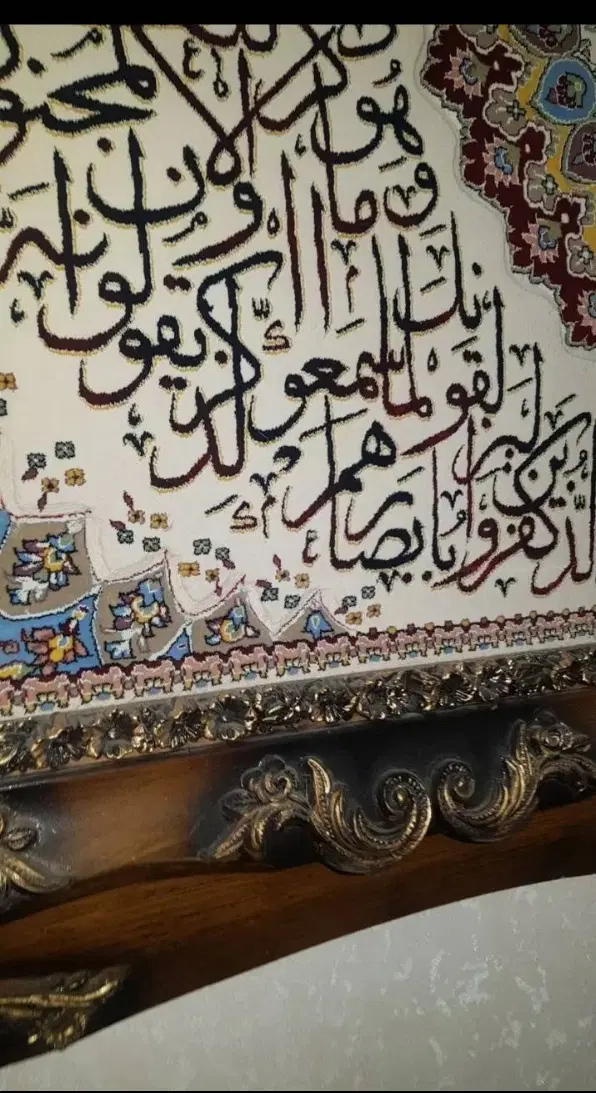 الذين كفروا ليزلقونك
بابصارهم لما سمعوا
الذكر ويقولون انه
لمجنون وما هو
الا ذكر